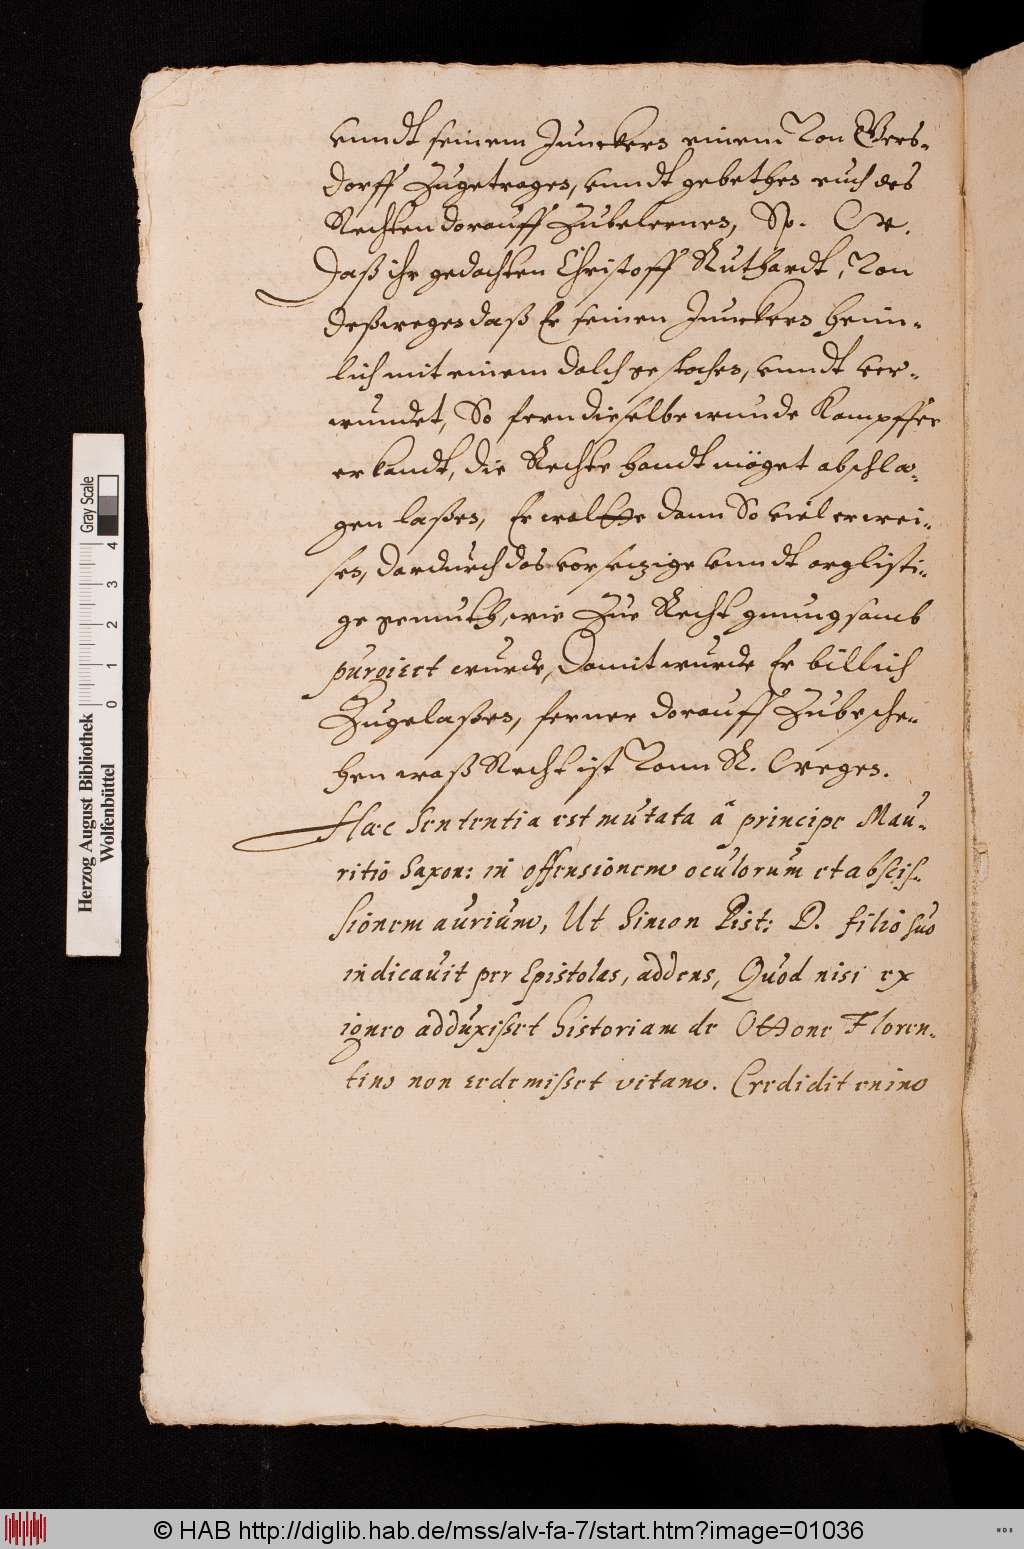 vnndt seinem Junckern einem Von Gers-
dorff Zugetragen, vnndt gebethen euch des
Rechten dorauff Zubelernen, Sp. Wr.
Daß ihr gedachten Christoff Ruthardt, Von
deßwegen daß Er seinen Junckern heim-
lich mit einem dolch gestochen, vnndt ver-
wundet, So fern dieselbe wunde Kampffer
erkandt, die Rechte handt möget abschla-
gen laßen, Er wolte dann So viel erwei-
sen, dardurch das vorsezige vnndt arglisti-
ge gemuth, wie Zue Recht gnungsamb
purgiert wurde, Damit wurde Er billich
Zugelaßen, ferner dorauff Zubesche-
hen waß Recht ist Vonn R. Wegen.
Haec Sententia est mutata à principe Mau-
ritio Saxon: in offensionem oculorum et abscis-
sionem aurium, Ut Simon Pist: D. filio suo
indicauit per Epistolas, addens, Quod nisi ex
igneo adduxisset historiam de Ottone Floren-
tino non redemisset vitam. Credidit enim
Herzog August Bibliothek
Wolfenbüttel
Gray Scale
0 1 2 3 4
© HAB http://diglib.hab.de/mss/alv-fa-7/start.htm?image=01036